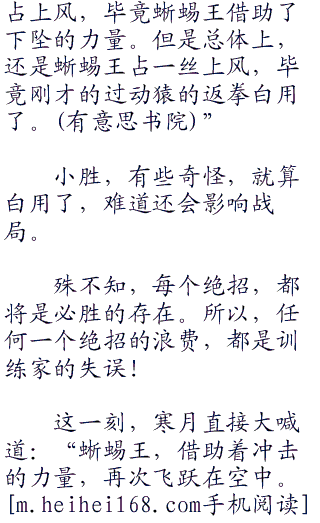 占上风，毕竟蜥蜴王借助了
下坠的力量。但是总体上，
还是蜥蜴王占一丝上风，毕
竟刚才的过动猿的返拳白用
了。(有意思书院)”
小胜，有些奇怪，就算
白用了，难道还会影响战
局。
殊不知，每个绝招，都
将是必胜的存在。所以，任
何一个绝招的浪费，都是训
练家的失误！
这一刻，寒月直接大喊
道：“蜥蜴王，借助着冲击
的力量，再次飞跃在空中。
[m.heihei168.com手机阅读]